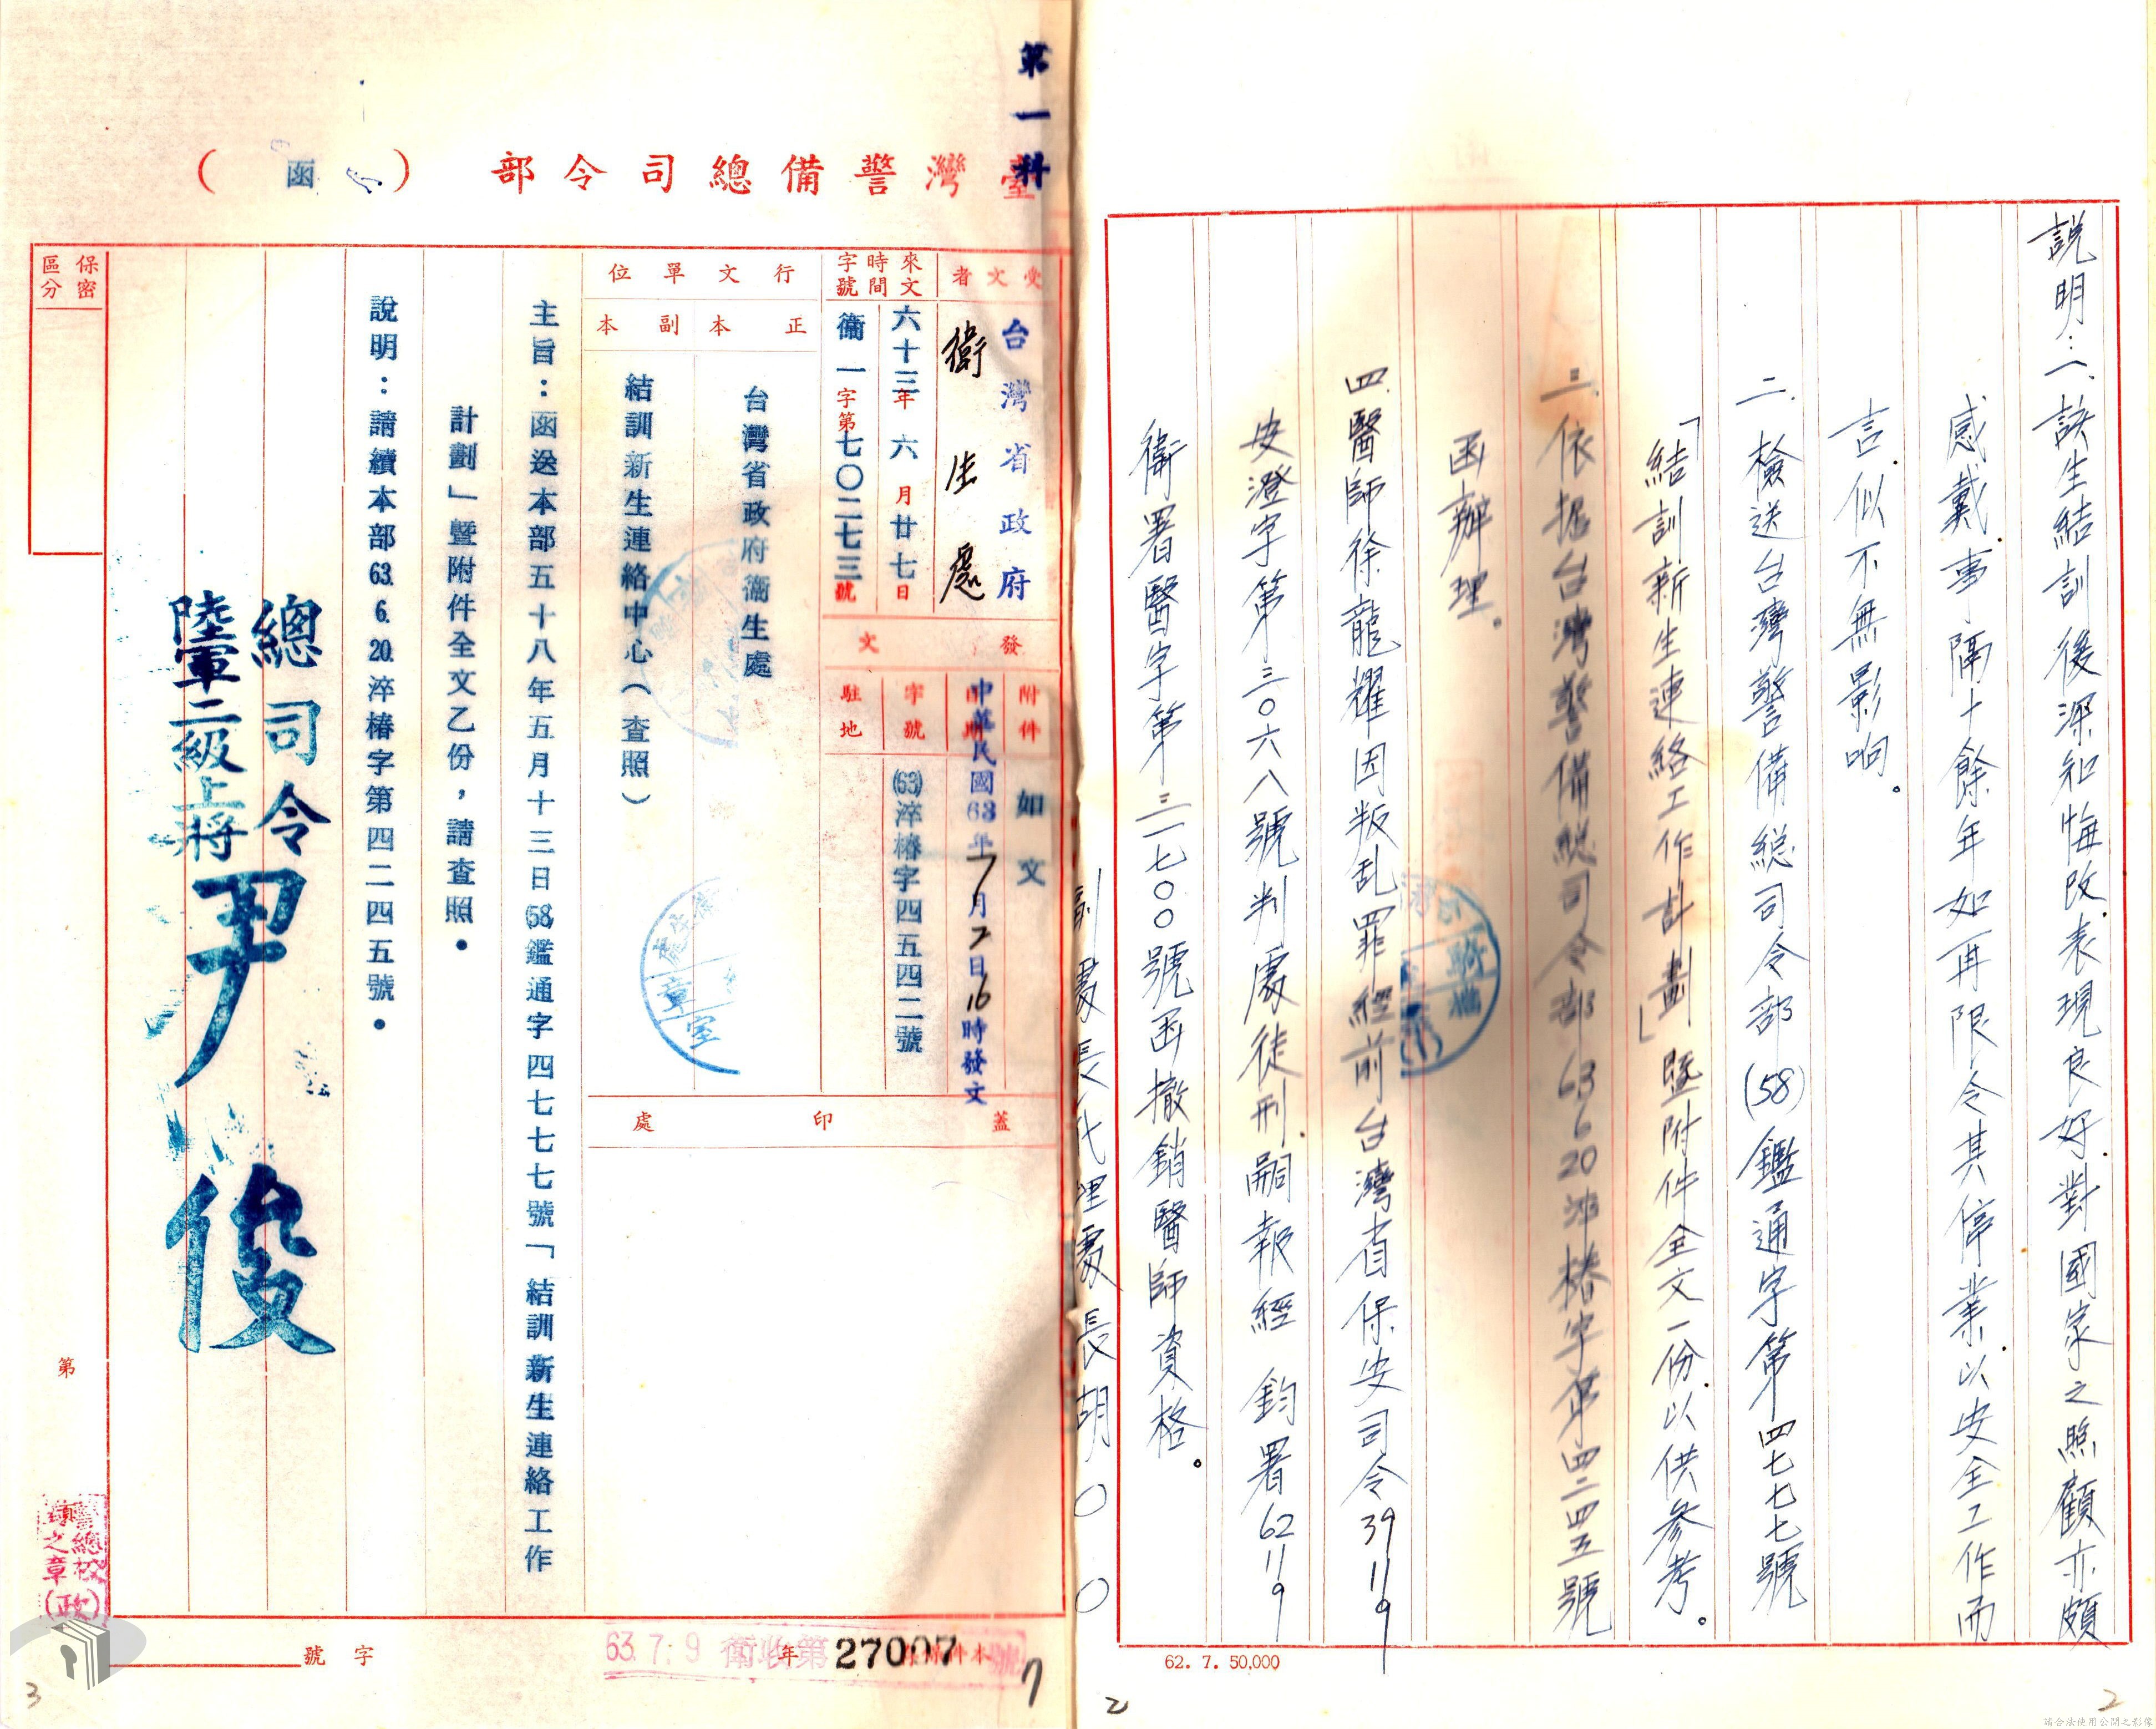 說明：一、該生結訓後深知悔改、表現良好、對國家之照顧亦頗
感戴、事隔十餘年如再限令其停業、以安全工作而
言、似不無影响。
二、檢送台灣警備總司令部(58)鑑通字第四七七七號
「結訓新生連絡工作計劃」暨附件全文一份、以供參考。
三、依据台灣警備總司令部63 6 20淬椿字第四二四五號
函辦理。
四、醫師徐龍耀因叛乱罪經前台灣省保安司令39 11 9
安澄字第三〇六八號判處徒刑、嗣報經 鈞署62 11 9
衛署醫字第三一七〇〇號函撤銷醫師資格。
副處長代理處長胡〇〇
62. 7. 50,000
2
2
第一科
臺灣警備總司令部（函）
受文者
台灣省政府
衛生處
來文
時間
字號
六十三年六月廿七日
衛一字第七〇二七三號
行文單位
正本
副本
台灣省政府衛生處
結訓新生連絡中心（查照）
發文
附件
如文
日期
中華民國63年7月2日16時發文
字號
(63)淬椿字四五四二號
駐地
蓋印處
主旨：函送本部五十八年五月十三日(58)鑑通字四七七七號「結訓新生連絡工作
計劃」暨附件全文乙份，請查照。
說明：請續本部63. 6. 20.淬椿字第四二四五號。
總司令
陸軍二級上將 尹俊
保密
區分
第
字號
警總校
對之章
(政)
63. 7. 9 衛收第 27007 號
7
3
請合法使用公開之影像